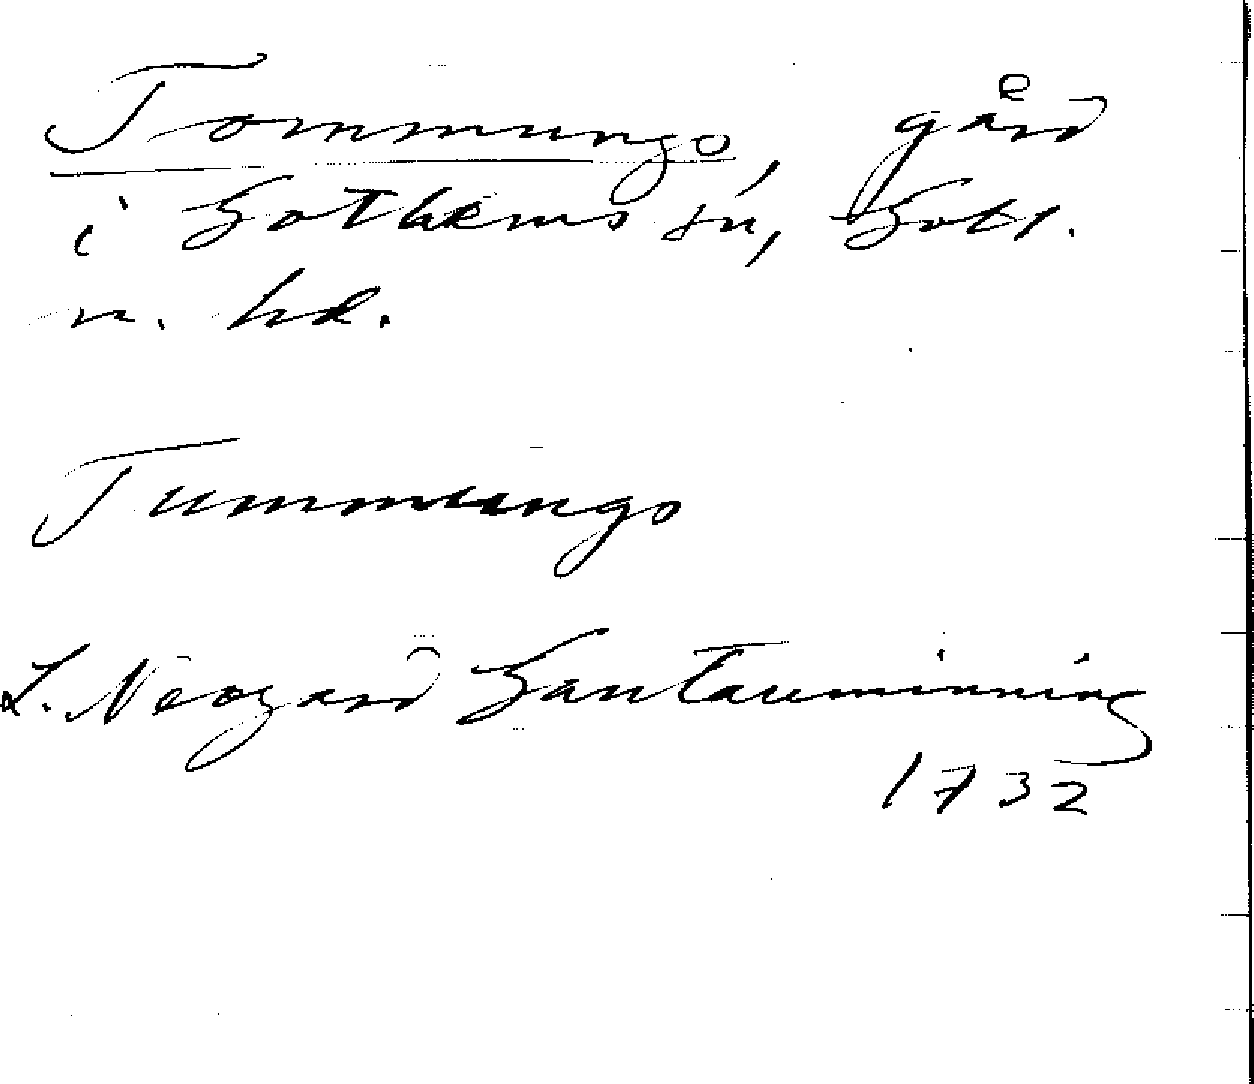 Tommungs, gård
i Gothems sn, Gotl.
n. hd.
Tummungs
L. Neogard Gautauminning
1732